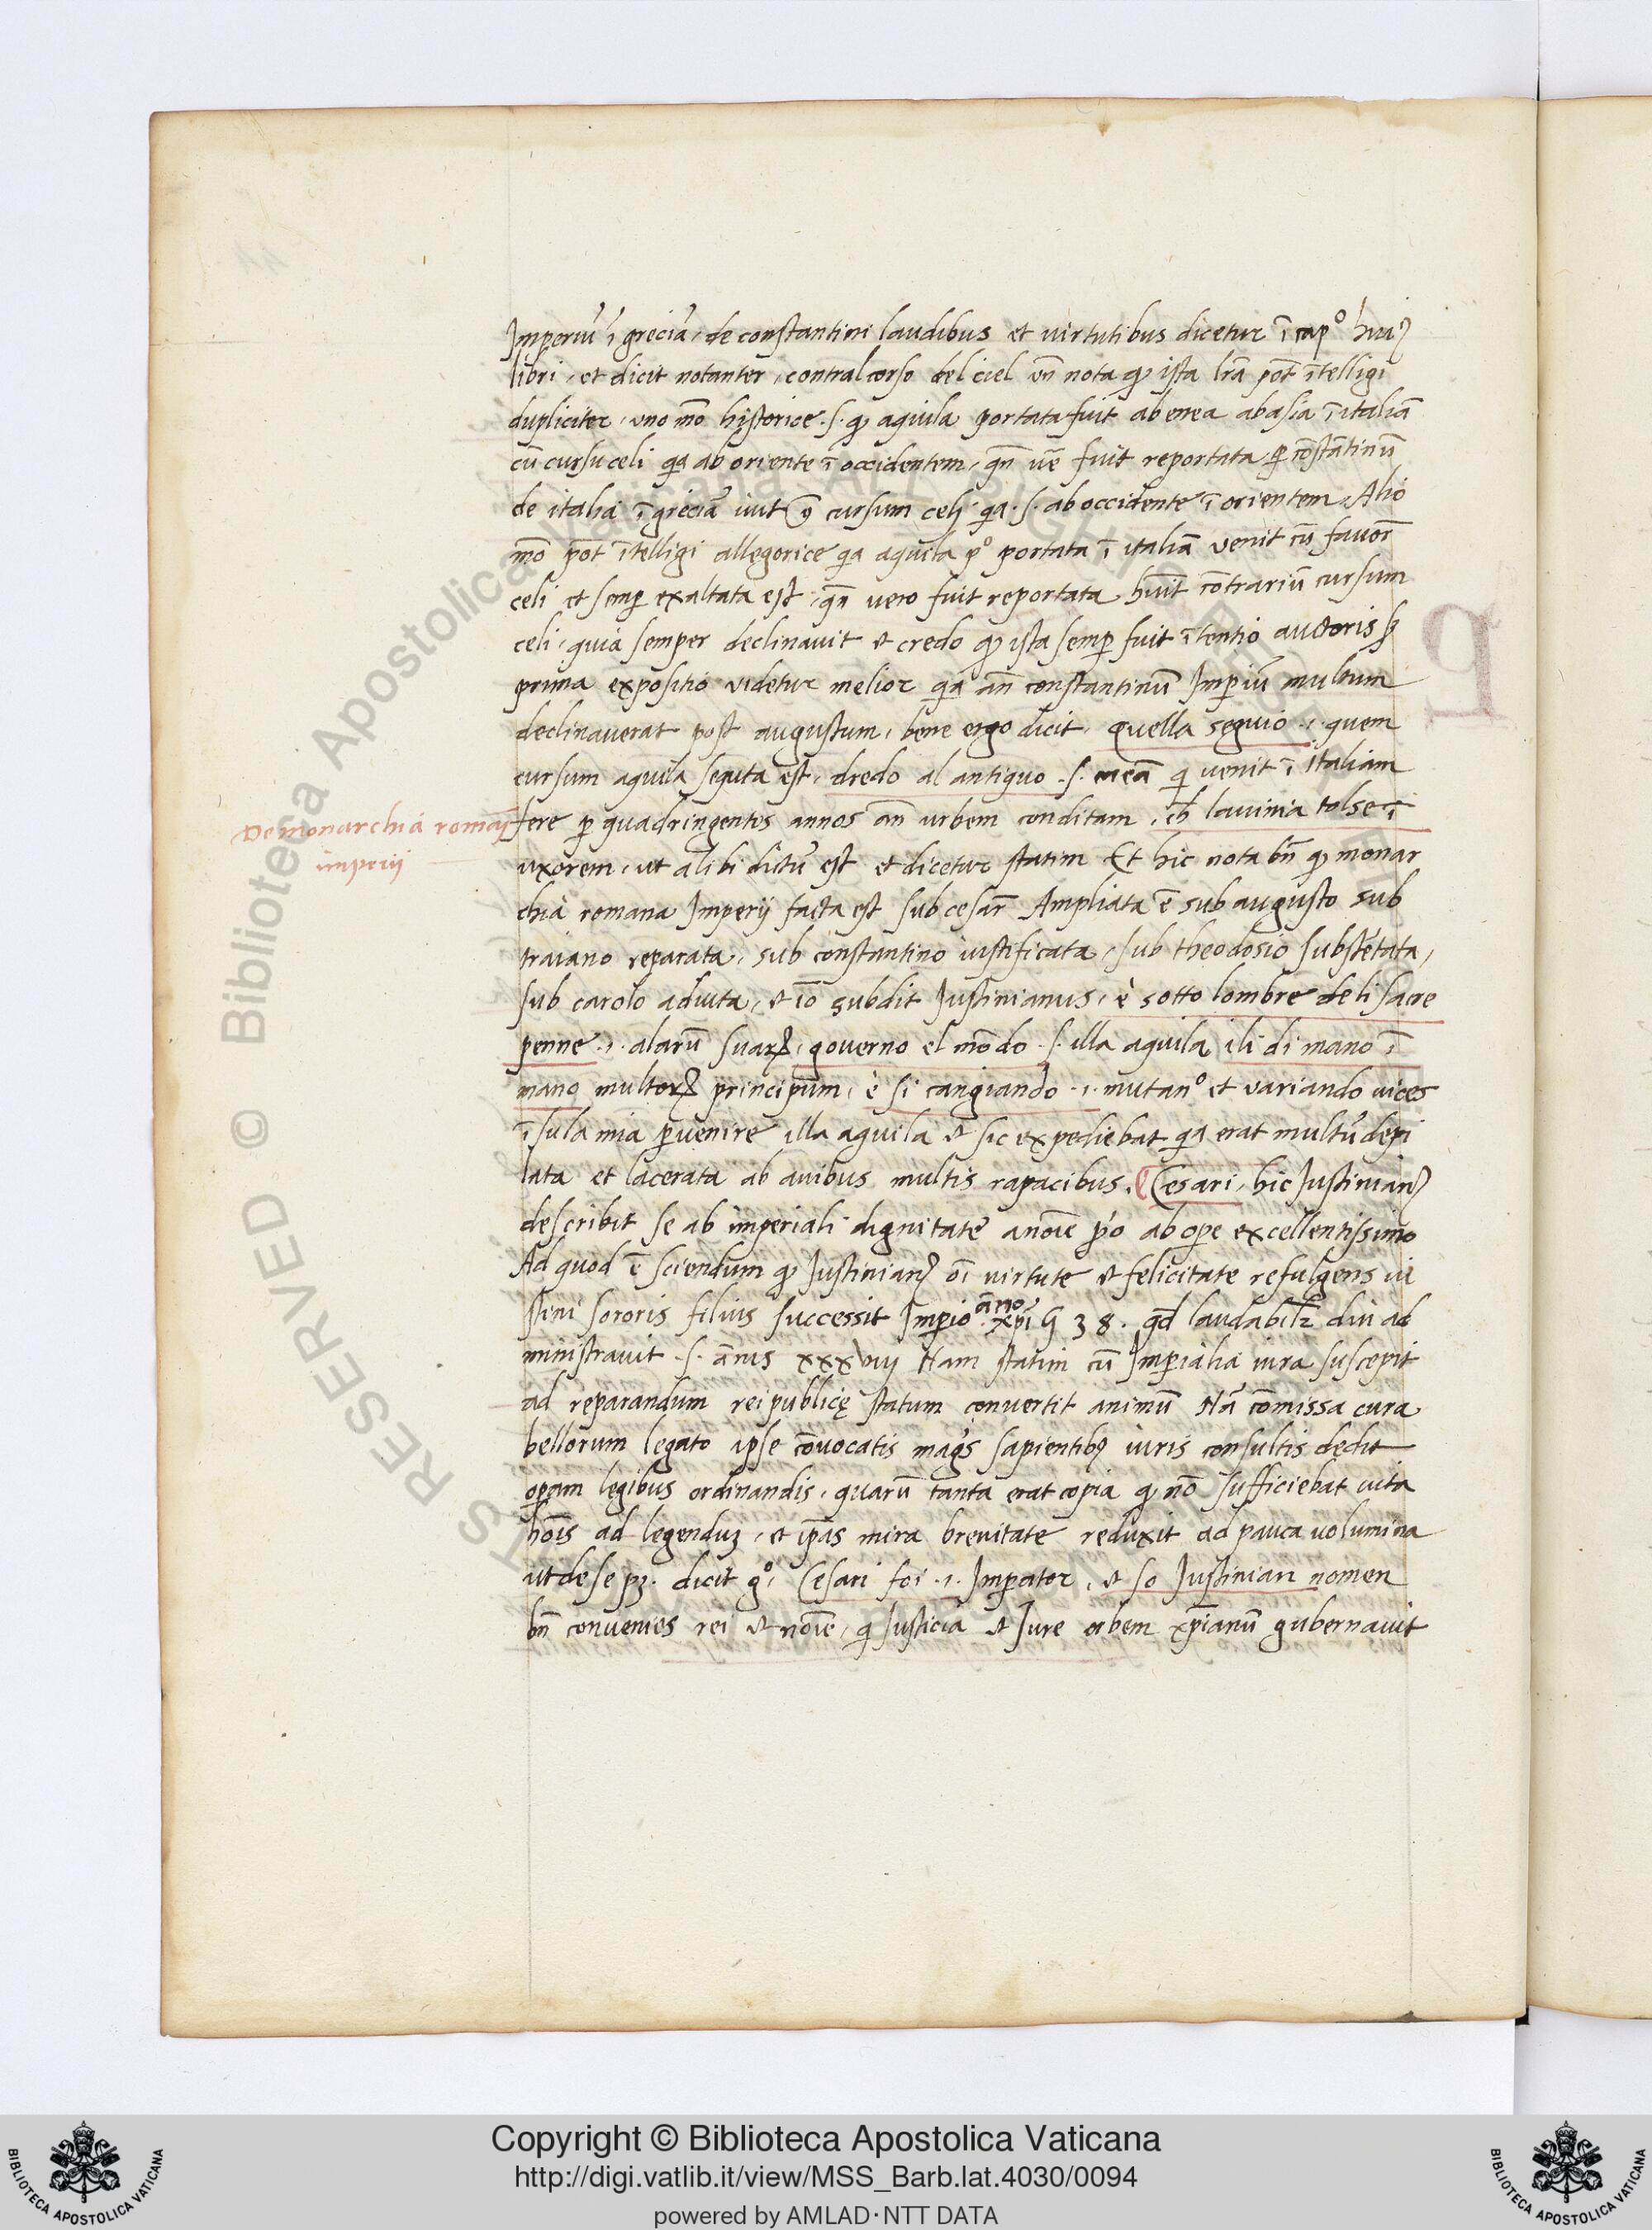 Imperiū ī greciā, de constantini laudibus et virtutibus dicetur ī capº huiꝰ
libri, et dicit notanter, contral corso del ciel un̄ nota qꝫ ista lr̄a pōt ītelligi
dupliciter, uno mō historice .s. qꝫ aquila portata fuit ab enea ab asia ī italiā
cū cursu celi qa ab oriente ī occidentem, qn̄ ūe fuit reportata ꝑ cōstātinū
de italia ī greciā iuit ꝯ cursum celi qa .s. ab occidente ī orientem, Alio
mō pōt ītelligi allegorice qa aquila pº portata ī italiā venit cū favor̄
celi et semp̄ exaltata est, qn̄ vero fuit reportata hūit cōtrariū cursum
celi, quia semper declinavit et credo qꝫ ista semp̄ fuit ītentio auctoris sꝫ
prima expositio videtur melior qa an̄ constantinū Imp̄iū multum
declinaverat post augustum, bene ergo dicit, quella seguio .i. quem
cursum aquila seguta est, dredo al antiquo .s. eneā q venit ī Italiam
De monarchia romai
imperij
fere ꝑ quadringentos annos an̄ urbem conditam, ch̄ lavinia tolse ī
uxorem, ut alibi dictū est et dicetur statim Et hic nota bn̄ qꝫ monar
chia romana Imperij facta est sub cesar̄ Ampliata ē sub augusto sub
traiano reparata, sub constantino iustificata, sub theodosio substētata,
sub carolo adiuta, et iō subdit Justinianus, è sotto lombre de li sacre
penne .i. alarū suaꝝ, governo el mōdo .s. illa aquila ili di mano ī
mano multoꝝ principum, è si cangiando .i. mutanº et variando vices
ī sula mia p̄venire illa aquila et sic expediebat qa erat multū depi
lata et lacerata ab avibus multis rapacibus. Cesari, hic Justinianꝰ
describit se ab imperiali dignitate a noīe p̄o ab ope excellentissimo
Ad quod ē sciendum qꝫ Justinianꝰ oī virtute et felicitate refulgens iu
stini sororis filius successit Imp̄io āno xpī 538. qd̄ laudabilr̄ diu ad
ministravit .s. ānis xxxviij Nam statim cū Imp̄ialia iura suscepit
ad reparandum rei publicę statum convertit animū Nā cōmissa cura
bellorum legato ipse cōvocatis mag's sapientibꝰ iuris consultis dedit
op̄am legibus ordinandis, quarū tanta erat copia qꝫ nō sufficiebat vita
hoīs ad legenduꝫ, et ip̄as mira brevitate reduxit ad pauca volumina
ut de se pꝫ. dicit gº, Cesari foi .i. Imp̄ator, et so Justinian nomen
bn̄ conveniēs rei et noīe, q Justicia et Jure orbem xp̄ianū gubernavit
Copyright © Biblioteca Apostolica Vaticana
http://digi.vatlib.it/view/MSS_Barb.lat.4030/0094
powered by AMLAD·NTT DATA
BIBLIOTECA APOSTOLICA VATICANA
BIBLIOTECA APOSTOLICA VATICANA